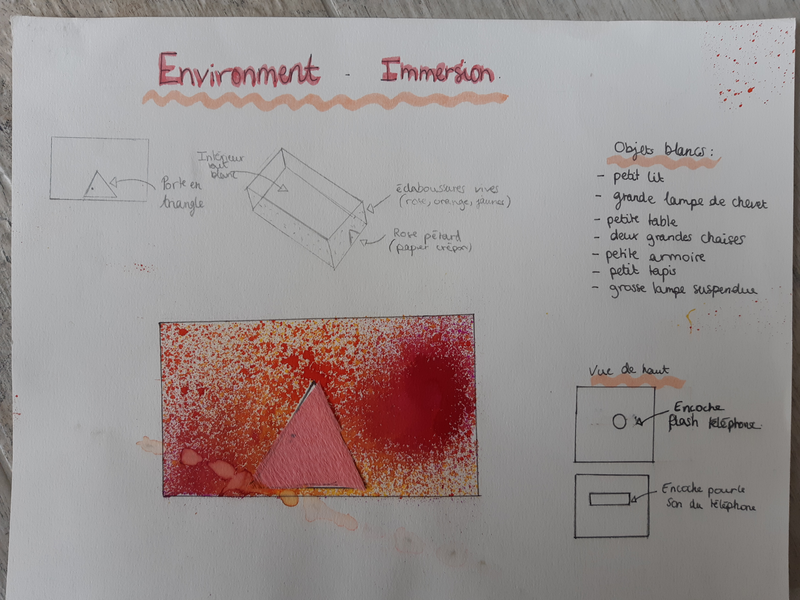 Environment - Immersion
Intérieur
tout
blanc
Porte en
triangle
éclaboussures vives
(rose, orange, jaunes)
Rose pétard
(papier crépon)
Objets blancs :
- petit lit
- grande lampe de chevet
- petite table
- deux grandes chaises
- petite armoire
- petit tapis
- grosse lampe suspendue
Vue de haut
Encoche
flash téléphone.
Encoche pour le
son du téléphone